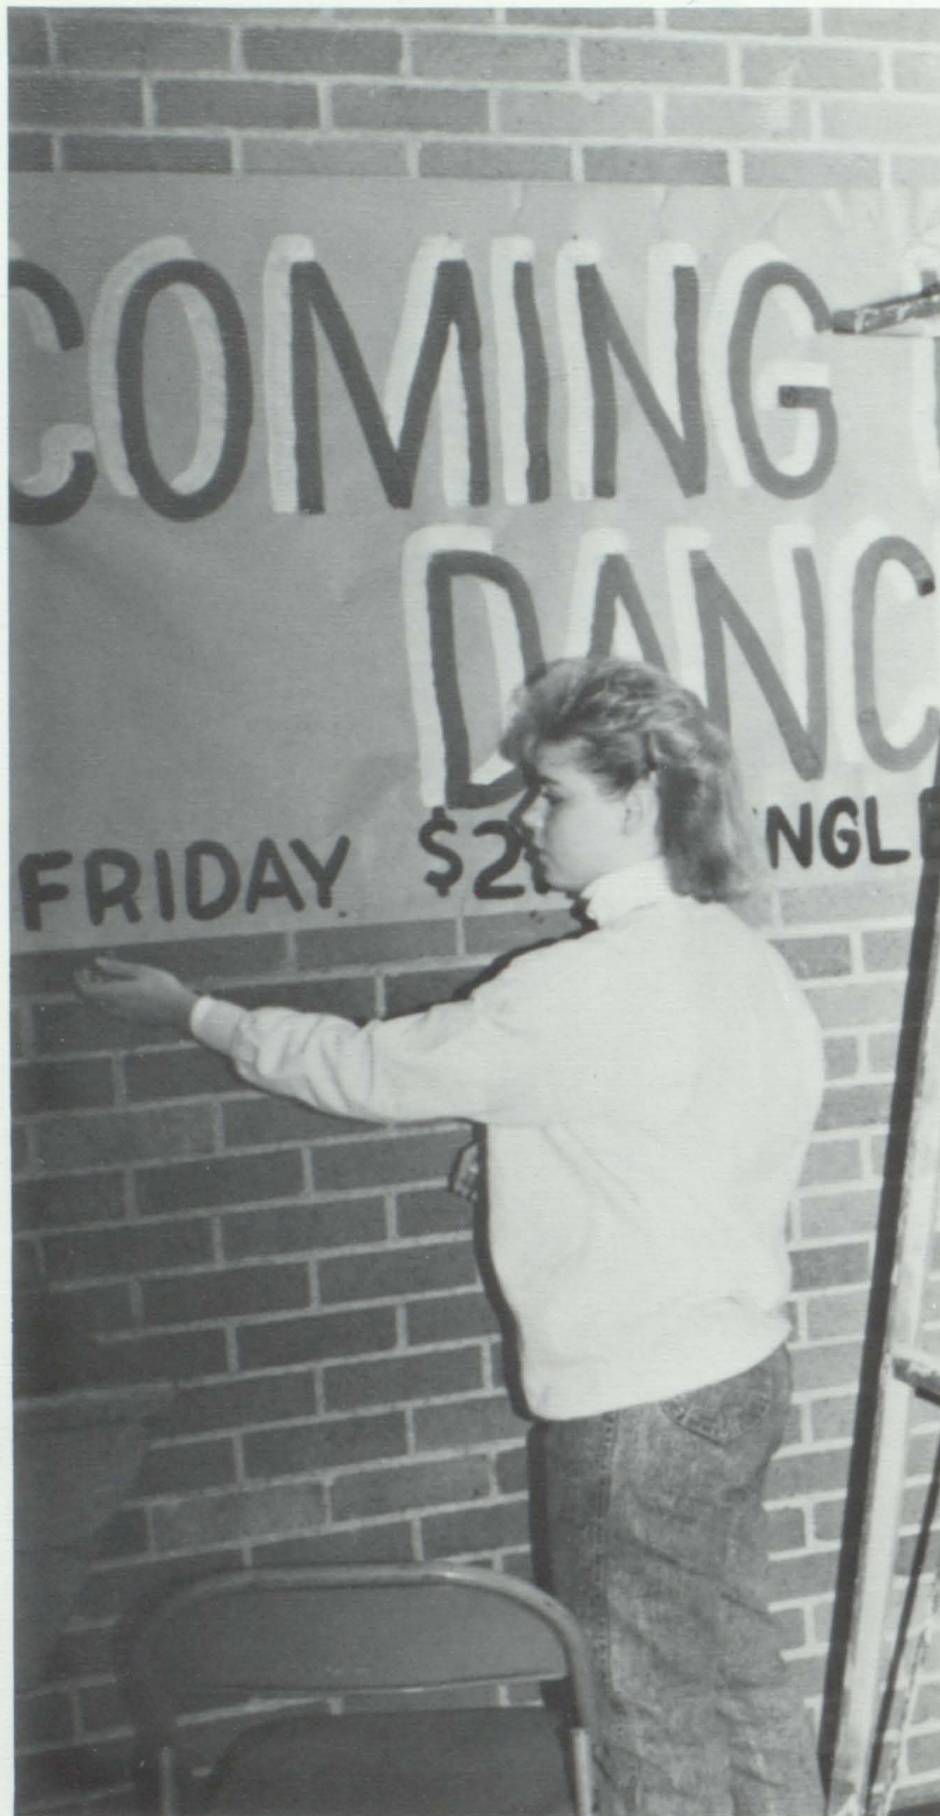 COMING
DANC
FRIDAY $2 NGL